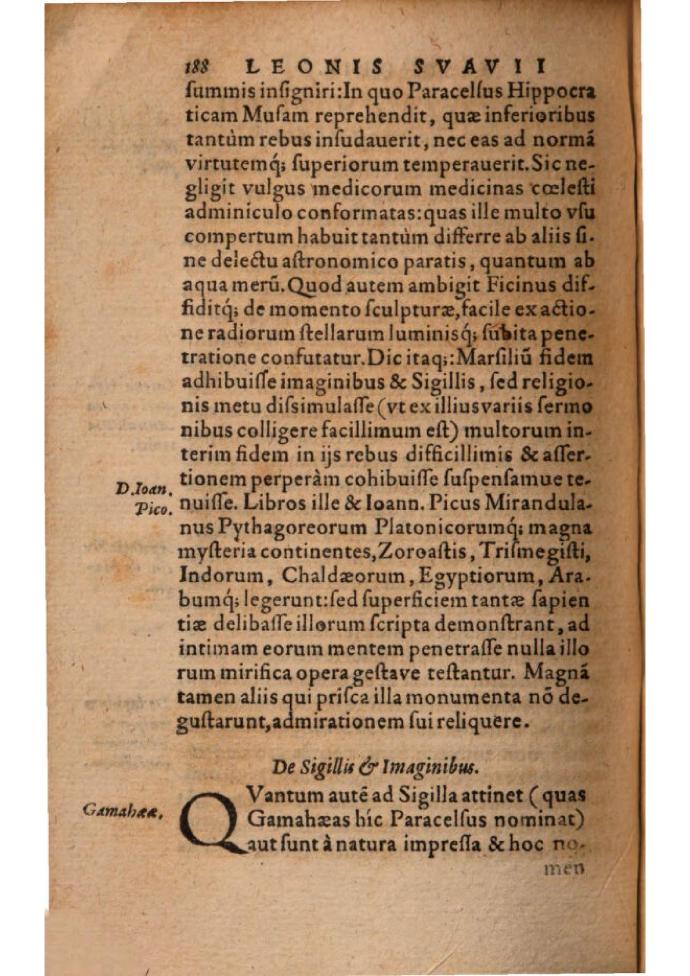 188 LEONIS SVAVII
ſummis inſigniri:In quo Paracelſus Hippocra
ticam Muſam reprehendit, quæ inferioribus
tantùm rebus inſudauerit, nec eas ad normã
virtutemq́; ſuperiorum temperauerit. Sic ne-
gligit vulgus medicorum medicinas cœleſti
adminiculo conformatas: quas ille multo vſu
compertum habuit tantùm differre ab aliis ſi-
ne delectu aſtronomico paratis, quantum ab
aqua merũ. Quod autem ambigit Ficinus dif-
fiditq́; de momento ſculpturæ, facile ex actio-
ne radiorum ſtellarum luminisq́; ſubita pene-
tratione confutatur. Dic itaq;: Marſiliũ fidem
adhibuiſſe imaginibus & Sigillis, ſed religio-
nis metu diſsimulaſſe (vt ex illius variis ſermo
nibus colligere facillimum eſt) multorum in-
terim fidem in ijs rebus difficillimis & aſſer-
D. Ioan. Pico.
tionem perperàm cohibuiſſe ſuſpenſamue te-
nuiſſe. Libros ille & Ioann. Picus Mirandula-
nus Pythagoreorum Platonicorumq́; magna
myſteria continentes, Zoroaſtis, Triſmegiſti,
Indorum, Chaldæorum, Egyptiorum, Ara-
bumq́; legerunt: ſed ſuperficiem tantæ ſapien
tiæ delibaſſe illorum ſcripta demonſtrant, ad
intimam eorum mentem penetraſſe nulla illo
rum mirifica opera geſtave teſtantur. Magnã
tamen aliis qui priſca illa monumenta nõ de-
guſtarunt, admirationem ſui reliquêre.
De Sigillis & Imaginibus.
Gamahææ.
QVantum autẽ ad Sigilla attinet (quas
Gamahæas hîc Paracelſus nominat)
aut ſunt à natura impreſſa & hoc no-
men